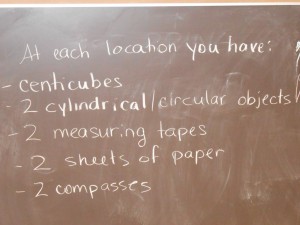 At each location you have:
- centicubes
- 2 cylindrical/circular objects
- 2 measuring tapes
- 2 sheets of paper
- 2 compasses